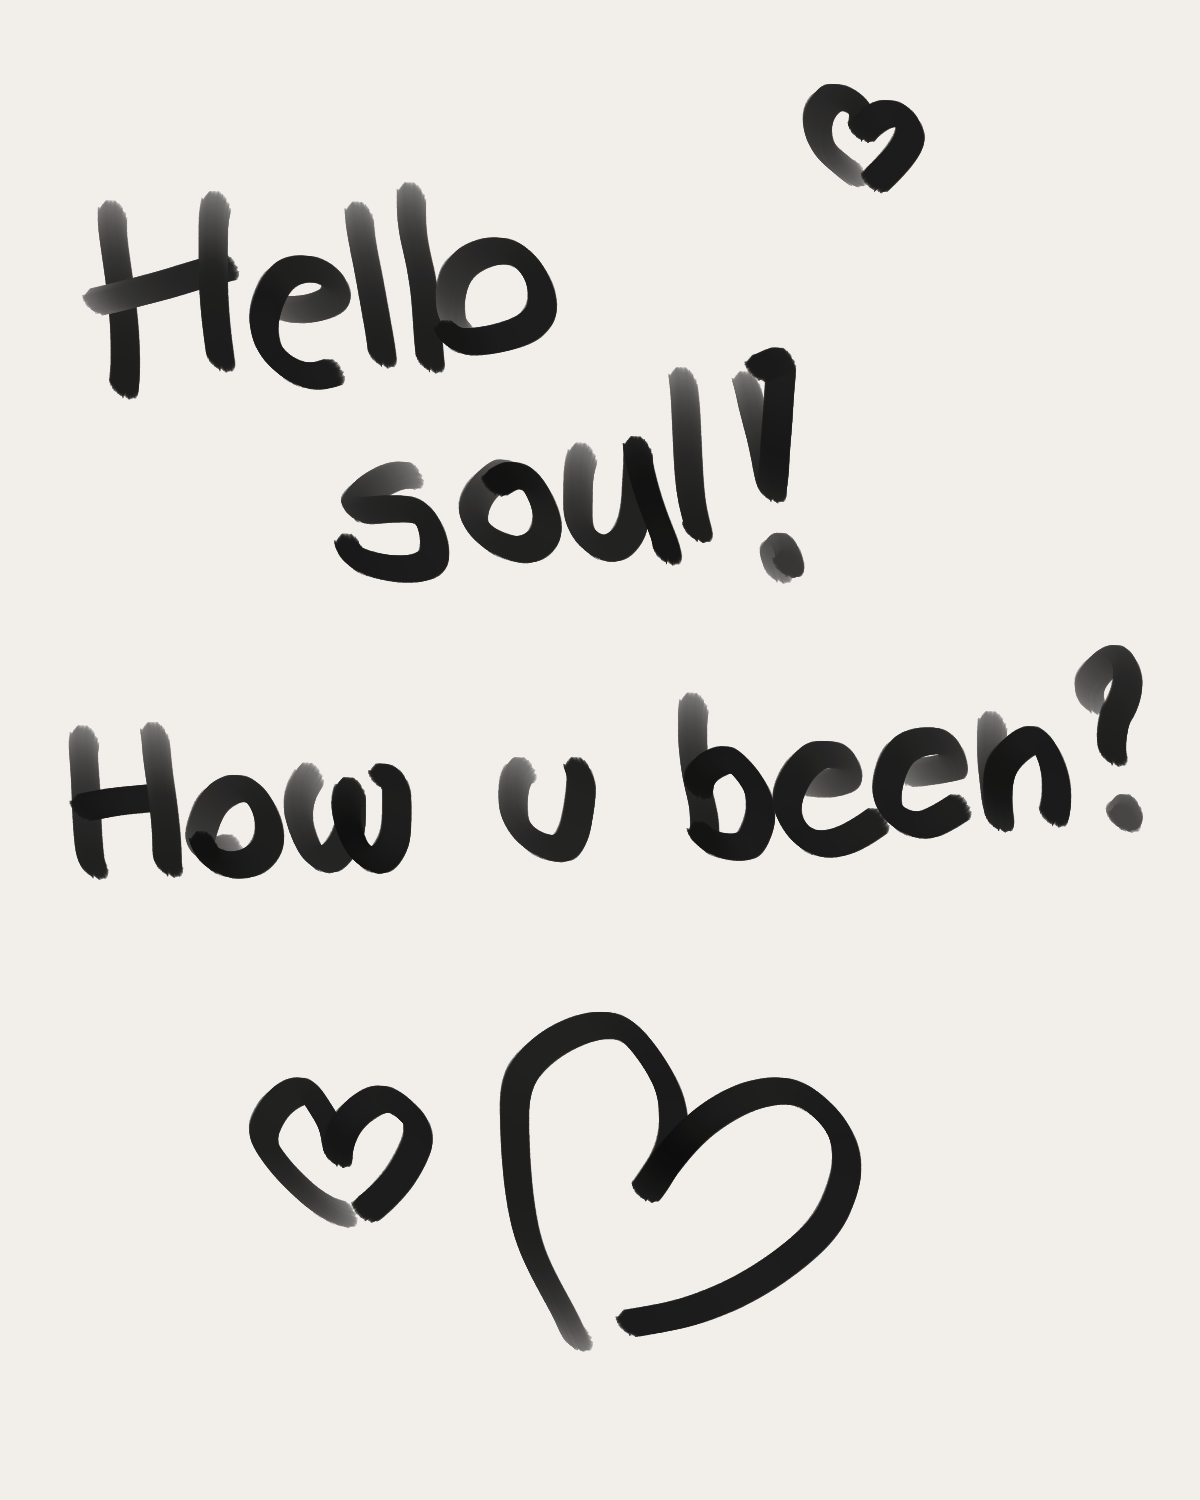 Hello
soul!
How u been?